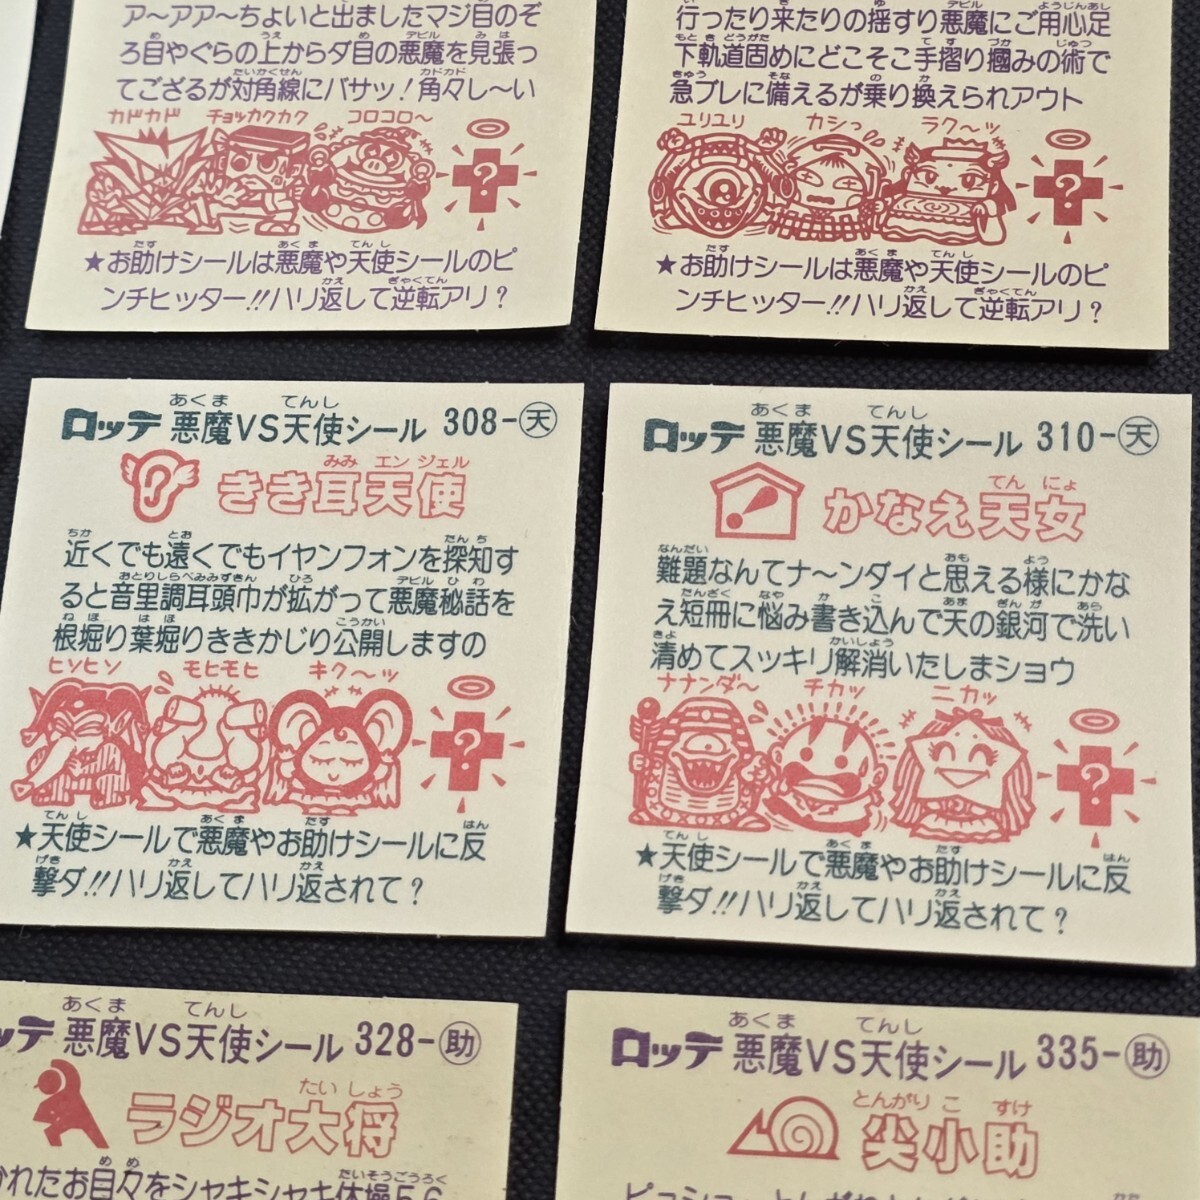 ア〜アア〜ちょいと出ましたマジ目のぞ
ろ目やぐらの上からダ目の悪魔を見張っ
てござるが対角線にバサッ！角々し〜い
カドカド チョッカクカク コロコロ〜
?
★お助けシールは悪魔や天使シールのピ
ンチヒッター!!ハリ返して逆転アリ？
行ったり来たりの揺すり悪魔にご用心足
下軌道固めにどこそこ手摺り掴みの術で
急ブレに備えるが乗り換えられアウト
ユリユリ カシっ ラク〜ッ
?
★お助けシールは悪魔や天使シールのピ
ンチヒッター!!ハリ返して逆転アリ？
ロッテ 悪魔VS天使シール 308-天
きき耳天使
近くでも遠くでもイヤンフォンを探知す
ると音里調耳頭巾が拡がって悪魔秘話を
根堀り葉堀りききかじり公開しますの
ヒソヒソ モヒモヒ キク〜ッ
?
★天使シールで悪魔やお助けシールに反
撃ダ!!ハリ返してハリ返されて？
ロッテ 悪魔VS天使シール 310-天
かなえ天女
難題なんてナ〜ンダイと思える様にかな
え短冊に悩み書き込んで天の銀河で洗い
清めてスッキリ解消いたしまショウ
ナナンダ〜 チカッ ニカッ
?
★天使シールで悪魔やお助けシールに反
撃ダ!!ハリ返してハリ返されて？
ッテ 悪魔VS天使シール 328-助
ラジオ大将
かれたお目々をシャキシャキ体操56
ロッテ 悪魔VS天使シール 335-助
尖小助